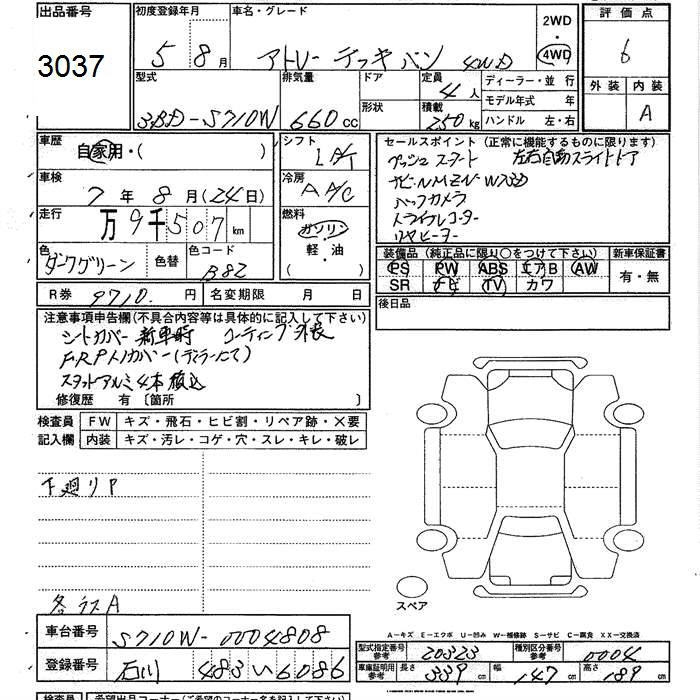 出品番号
3037
初度登録年月
5 8月
車名・グレード
アトレー デッキバン 4WD
2WD
・
4WD
評価点
6
外装 内装
A
型式
3BD-S710W
排気量
660cc
ドア
形状
定員
4人
積載
250kg
ディーラー・並行
モデル年式 年
ハンドル 左・右
車歴
自家用・( )
シフト
LA/T
車検
7年8月(24日)
冷房
A A/C
走行
万9千507km
燃料
ガソリン・
軽・油
( )
色
ダークグリーン
色替
色コード
B82
R券 9710.円
名変期限 月 日
セールスポイント(正常に機能するものに限ります)
プッシュスタート 左右自動スライドドア
ナビNMZN-W73D
バックカメラ
ドライブレコーダー
リヤヒーター
装備品(純正品に限り○をつけて下さい)
新車保証書
PS PW ABS エアB AW
SR ナビ TV カワ
有・無
後日品
注意事項申告欄(不具合内容等は具体的に記入して下さい)
シートカバー 新車時 コーティング外装
スタットアルミ4本積込
修復歴 有 〔箇所 〕
検査員
記入欄
FW キズ・飛石・ヒビ割・リペア跡・×要
内装 キズ・汚レ・コゲ・穴・スレ・キレ・破レ
下廻りP
各ラスA
スペア
A-キズ E-エクボ U-凹み W-補修跡 S-サビ C-腐食 XX-交換済
車台番号 S710W-0004808
登録番号 石川 483 い 6086
型式指定番号
参考
20323
種別区分番号
参考
0004
車庫証明用
参考
長さ 339cm 幅 147cm 高さ 189cm
検査員 希望出品コーナー(ご希望のコーナー名を記入して下さい)